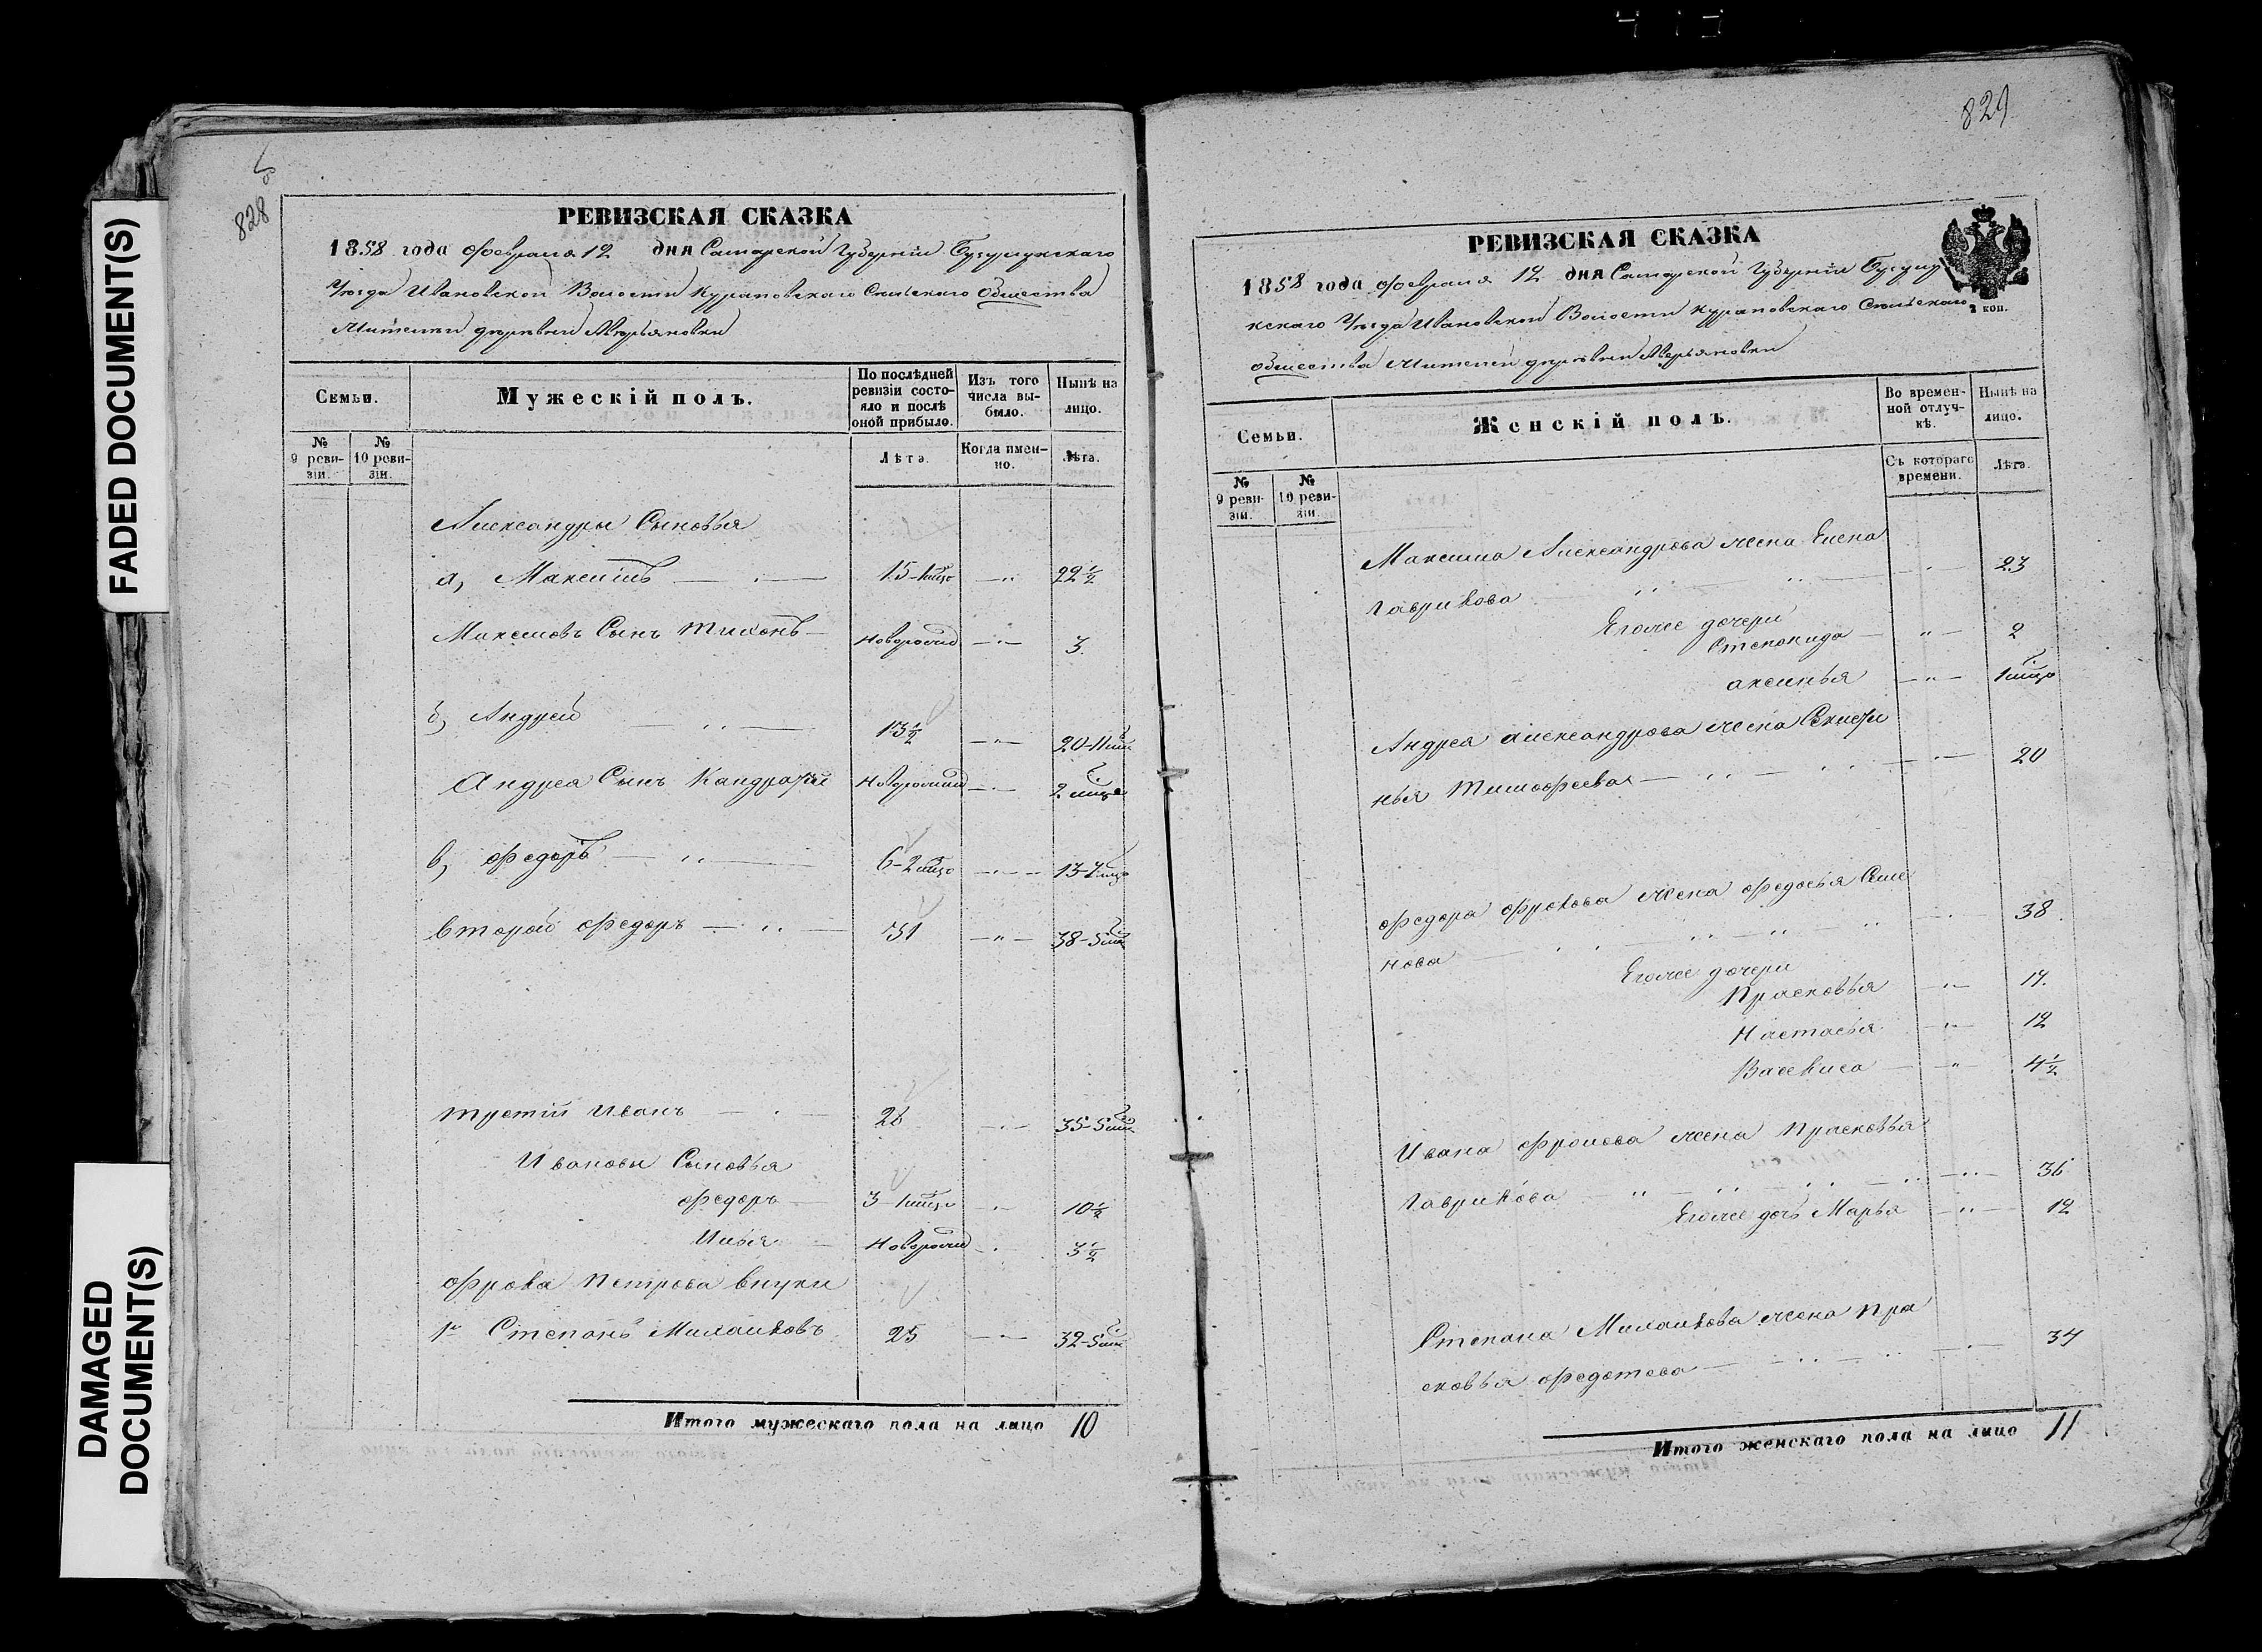 FADED DOCUMENT(S)
DAMAGED
DOCUMENT(S)
828
РЕВИЗСКАЯ СКАЗКА
1858 года февраля 12 дня Самарской Губернiи Бузулукскаго
Уезда Ивановской Волости Сельскаго общества
Жителей деревни Аверьяновки
Семьи.
Мужескiй полъ.
По послѣдней ревизiи состояло и послѣ оной прибыло.
Изъ того числа выбыло.
Нынѣ на лицо.
№ 9 ревизiи.
№ 10 ревизiи.
Лѣта.
Когда именно.
Лѣта.
Александры Сыновья
а, Максимъ 15-1 мѣс 22½
Максимовъ Сынъ Тихонъ новорожд 3
б, Андрей 13½ 20-11 мѣс
Андрея Сынъ Кандратiй новорожд 2 мѣс
в, Федоръ 6-2 мѣс 13-7 мѣс
второй федоръ 31 38-5 мѣс
третiй Иванъ 28 35-5 мѣс
Ивановы Сыновья
федоръ 3-1 мѣс 10½
Илья новорожд 3½
фрола Петрова внуки
1й Степанъ Михайловъ 25 32-5 мѣс
Итого мужескаго пола на лицо 10
829
РЕВИЗСКАЯ СКАЗКА
2 коп.
1858 года февраля 12 дня Самарской Губернiи Бузулу
кскаго Уезда Ивановской Волости Сельскаго
общества Жителей деревни Аверьяновки
Семьи.
Женскiй полъ.
Во временной отлучкѣ.
Нынѣ на лицо.
№ 9 ревизiи.
№ 10 ревизiи.
Съ котораго времени.
Лѣта.
Максима Александрова жена Елена
Гаврилова 23
Егоже дочери
Степанида 2
аксинья 1 мѣс
Андрея александрова жена
нья Тимофеева 20
федора фролова жена федосья Семе
нова 38
Егоже дочери
Прасковья 17.
Настасья 12
Васелиса 4½
Ивана фролова жена Прасковья
Гаврилова 36
Егоже дочь Марья 12
Степана Михайлова жена Пра
сковья федотова 34
Итого женскаго пола на лицо 11